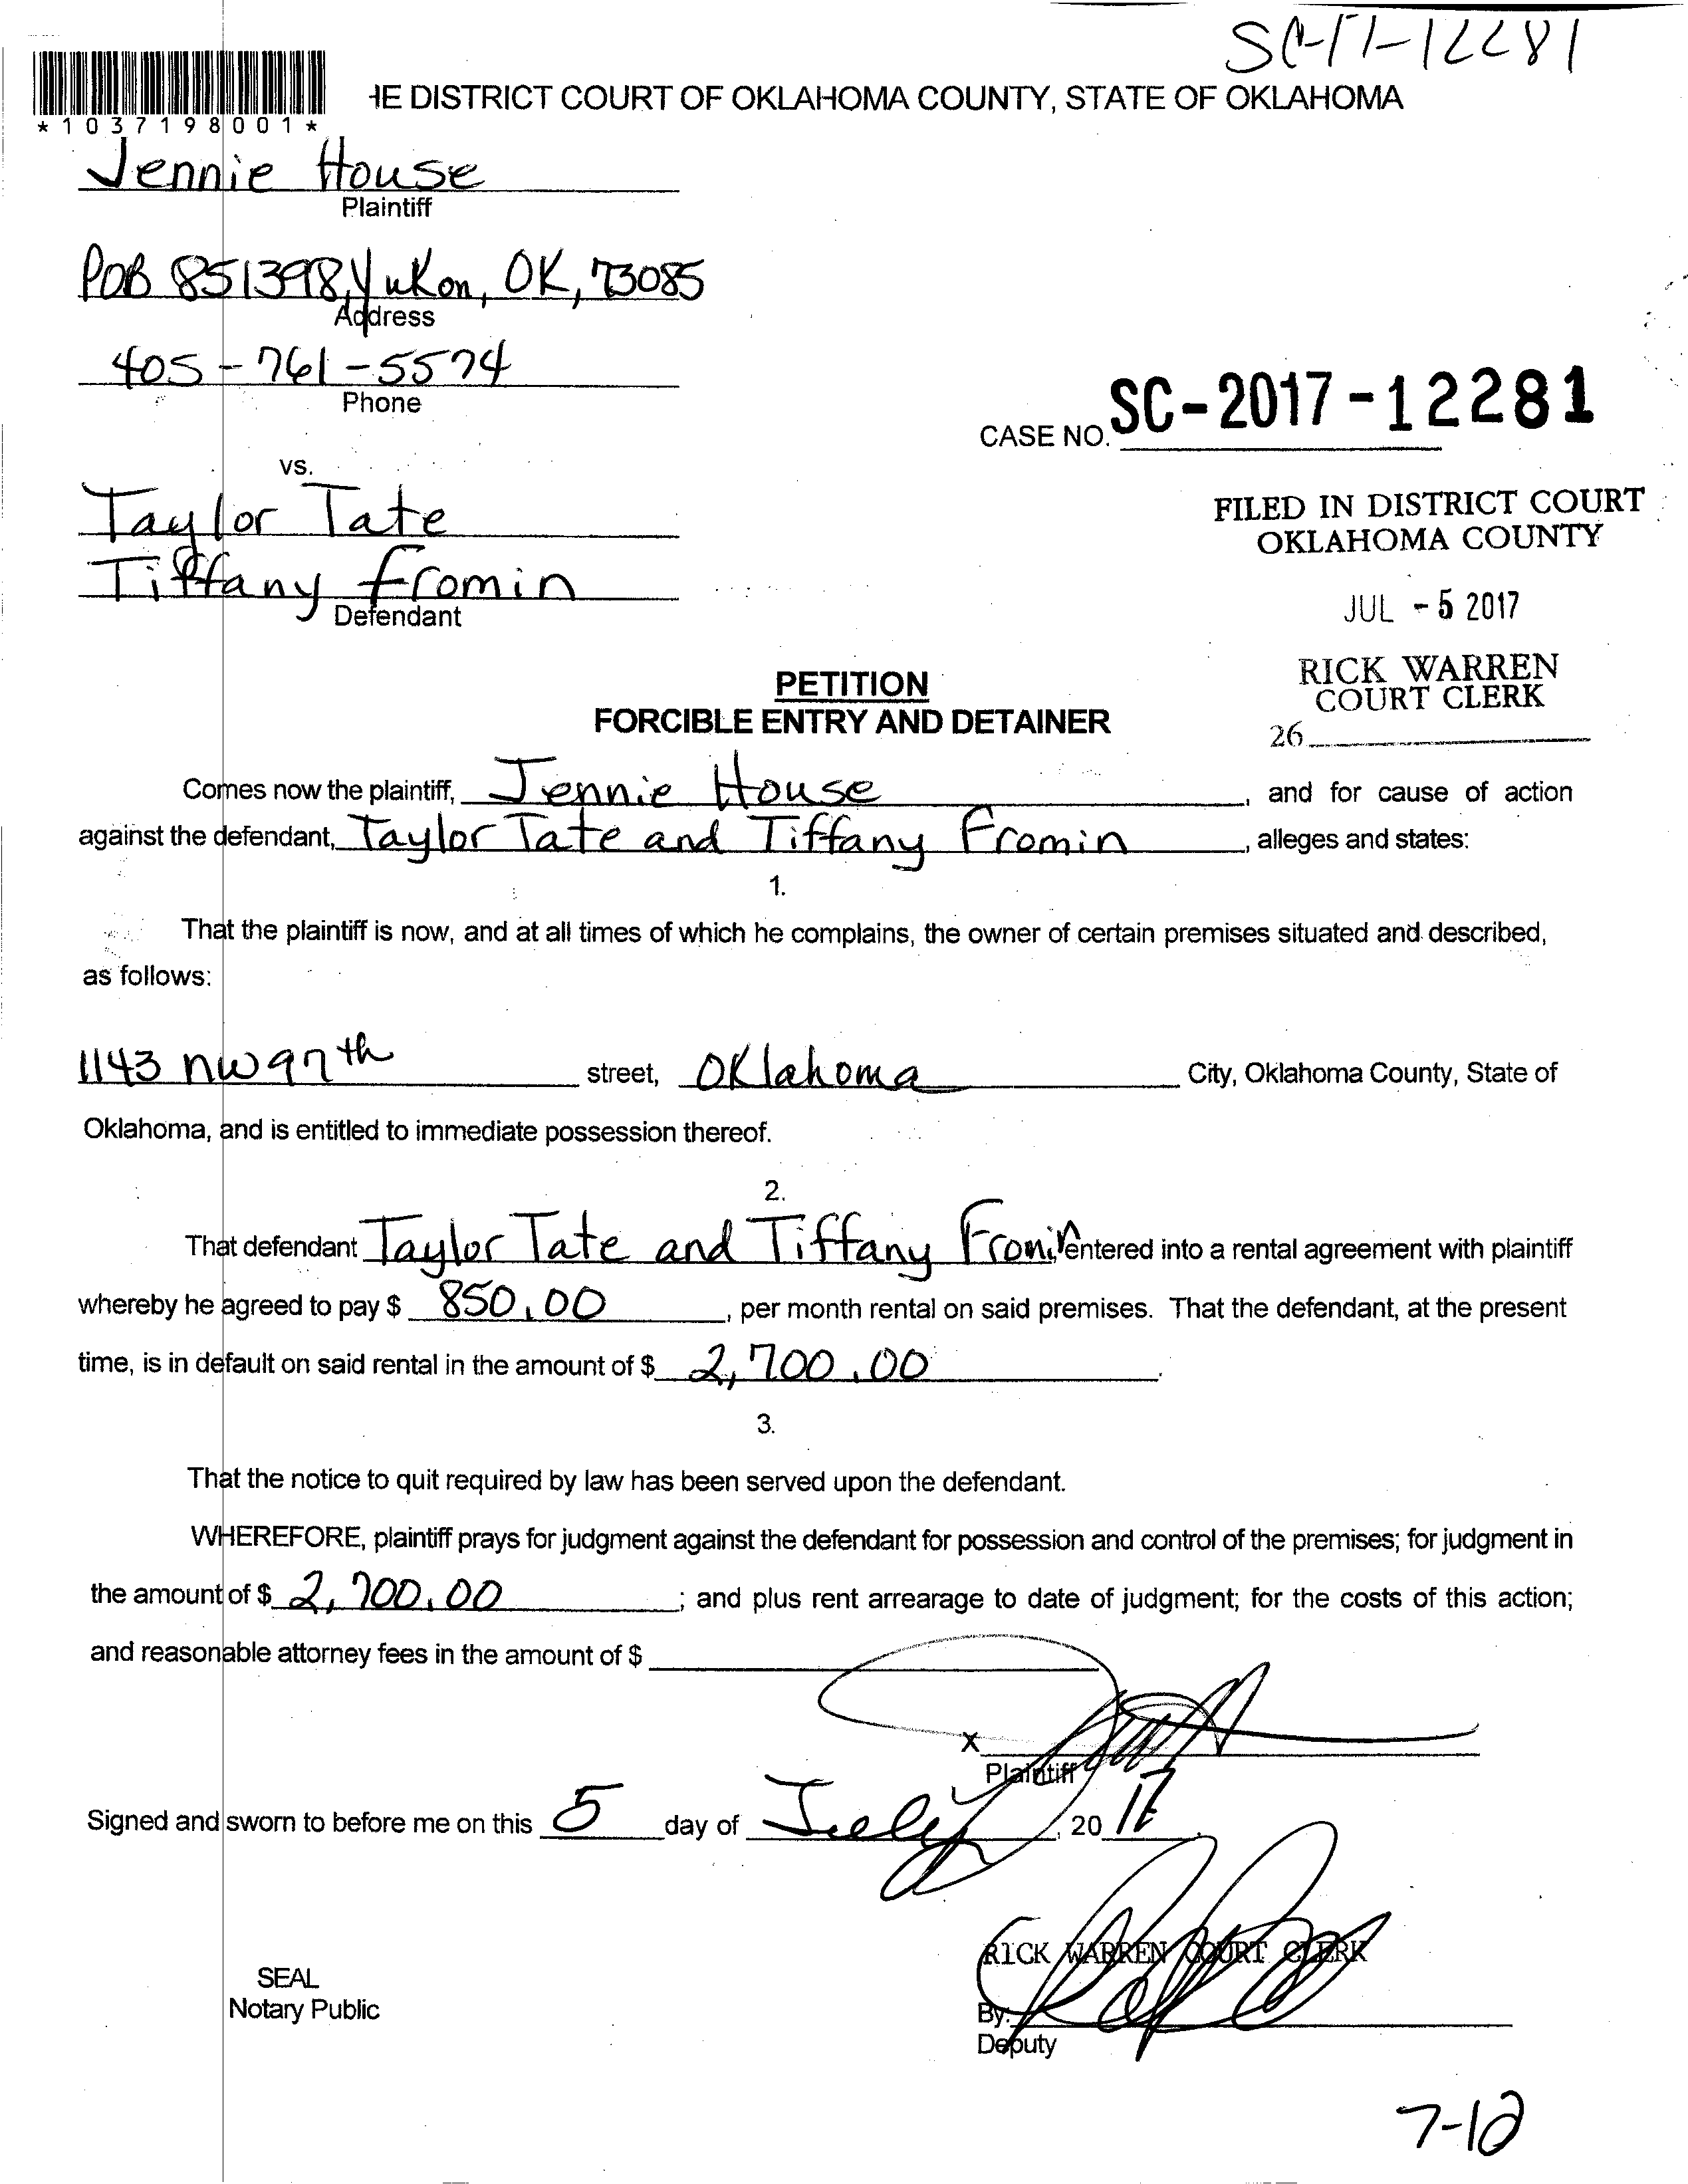 SC-17-12281
*1037198001*
HE DISTRICT COURT OF OKLAHOMA COUNTY, STATE OF OKLAHOMA
Jennie House
Plaintiff
POB 851398, Yukon, OK, 73085
Address
405-761-5574
Phone
CASE NO. SC-2017-12281
vs.
Taylor Tate
Tiffany Fromin
Defendant
FILED IN DISTRICT COURT
OKLAHOMA COUNTY
JUL -5 2017
RICK WARREN
COURT CLERK
26
PETITION
FORCIBLE ENTRY AND DETAINER
Comes now the plaintiff, Jennie House, and for cause of action
against the defendant, Taylor Tate and Tiffany Fromin, alleges and states:
1.
That the plaintiff is now, and at all times of which he complains, the owner of certain premises situated and described,
as follows:
1143 NW 97th street, Oklahoma City, Oklahoma County, State of
Oklahoma, and is entitled to immediate possession thereof.
2.
That defendant Taylor Tate and Tiffany Fromin entered into a rental agreement with plaintiff
whereby he agreed to pay $ 850.00, per month rental on said premises. That the defendant, at the present
time, is in default on said rental in the amount of $ 2,700.00.
3.
That the notice to quit required by law has been served upon the defendant.
WHEREFORE, plaintiff prays for judgment against the defendant for possession and control of the premises; for judgment in
the amount of $ 2,700.00; and plus rent arrearage to date of judgment; for the costs of this action;
and reasonable attorney fees in the amount of $
X
Plaintiff
Signed and sworn to before me on this 5 day of July, 2017.
RICK WARREN COURT CLERK
SEAL
Notary Public
By:
Deputy
7-12